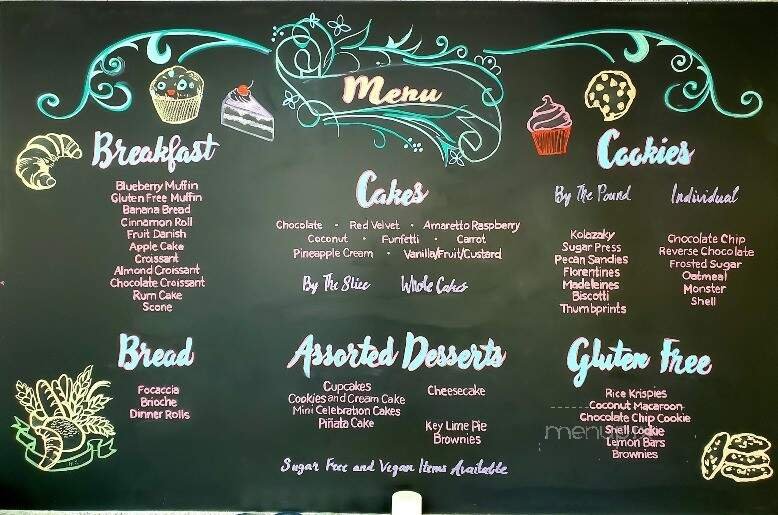 Menu
Breakfast
Blueberry Muffin
Gluten Free Muffin
Banana Bread
Cinnamon Roll
Fruit Danish
Apple Cake
Croissant
Almond Croissant
Chocolate Croissant
Rum Cake
Scone
Cakes
Chocolate · Red Velvet · Amaretto Raspberry
Coconut · Funfetti · Carrot
Pineapple Cream · Vanilla/Fruit/Custard
By The Slice Whole Cakes
Cookies
By The Pound
Kolazaky
Sugar Press
Pecan Sandies
Florentines
Madeleines
Biscotti
Thumbprints
Individual
Chocolate Chip
Reverse Chocolate
Frosted Sugar
Oatmeal
Monster
Shell
Bread
Focaccia
Brioche
Dinner Rolls
Assorted Desserts
Cupcakes
Cookies and Cream Cake
Mini Celebration Cakes
Piñata Cake
Cheesecake
Key Lime Pie
Brownies
Sugar Free and Vegan Items Available
Gluten Free
Rice Krispies
Coconut Macaroon
Chocolate Chip Cookie
Shell Cookie
Lemon Bars
Brownies